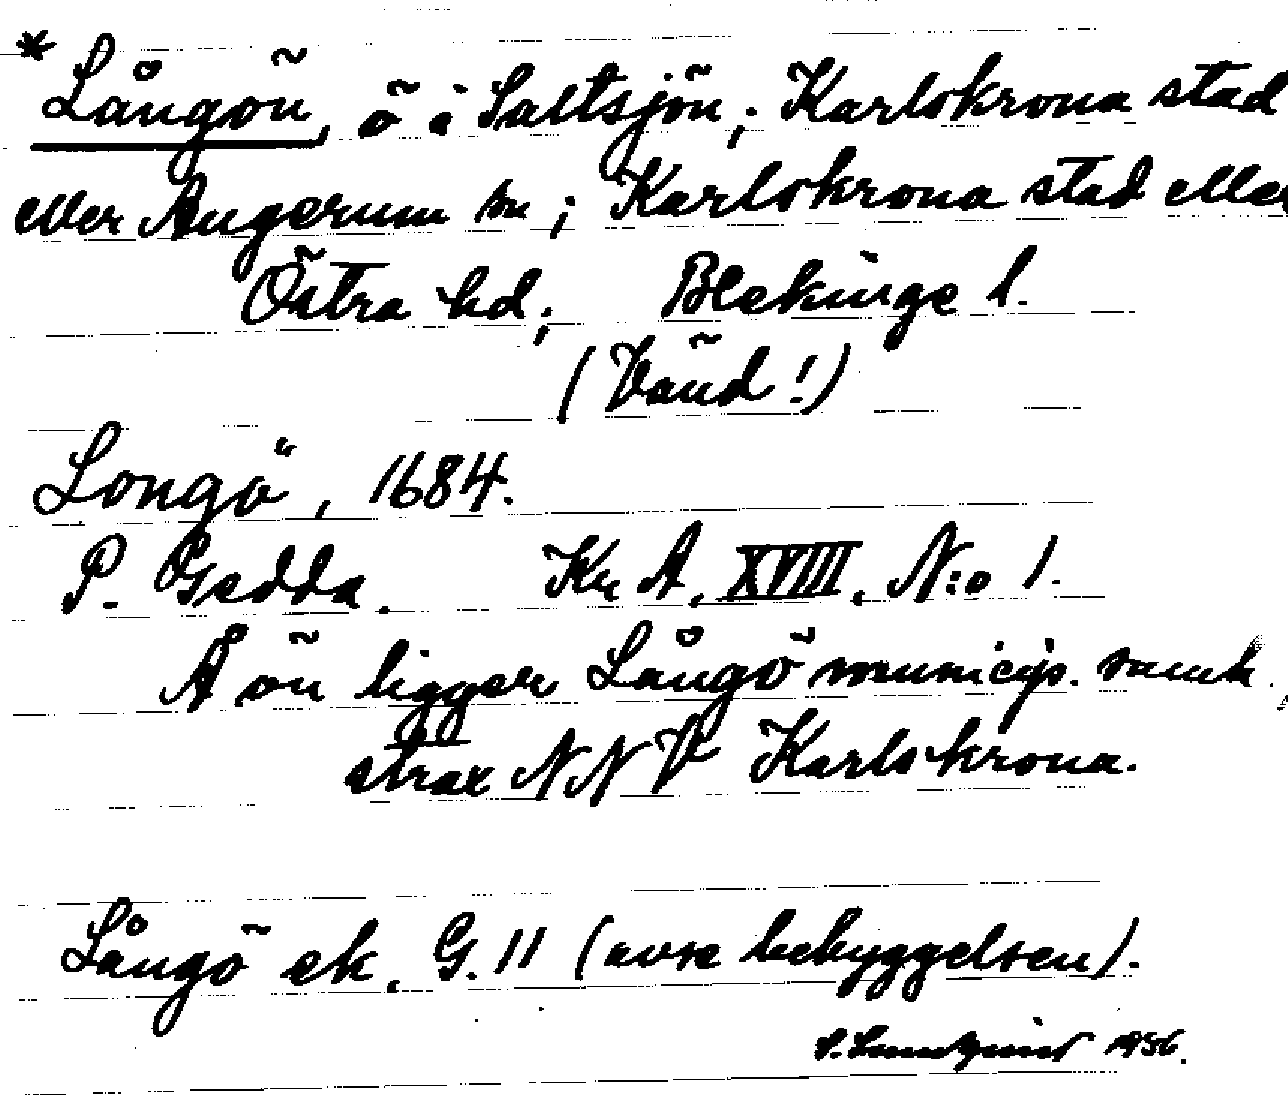 *Långön, ö i Saltsjön; Karlskrona stad
eller Augerum sn; Karlskrona stad eller
Östra hd; Blekinge l.
(Vänd!)
Longö, 1684.
P. Gedda. Kr A, XVIII, N:o 1.
Å ön ligger Långö municip. samh.,
strax NNV Karlskrona.
Långö ek. G. 11 (avse bebyggelsen).
S. Lundquist 1956.